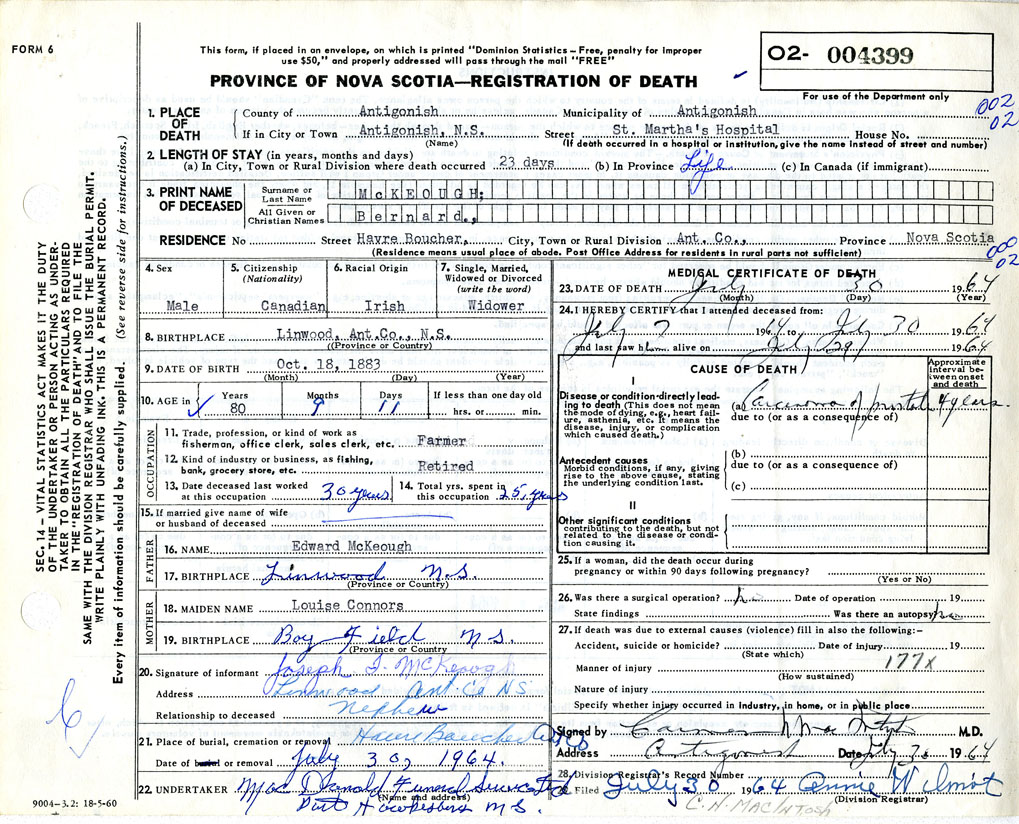 FORM 6
This form, if placed in an envelope, on which is printed "Dominion Statistics – Free, penalty for improper
use $50," and properly addressed will pass through the mail "FREE"
PROVINCE OF NOVA SCOTIA—REGISTRATION OF DEATH
02- 004399
For use of the Department only
002
02
1. PLACE OF DEATH
County of Antigonish Municipality of Antigonish
If in City or Town Antigonish, N.S. Street St. Martha's Hospital House No.
(Name) (If death occurred in a hospital or institution, give the name instead of street and number)
2. LENGTH OF STAY (in years, months and days)
(a) In City, Town or Rural Division where death occurred 23 days (b) In Province Life (c) In Canada (if immigrant)
3. PRINT NAME OF DECEASED
Surname or Last Name McKEOUGH;
All Given or Christian Names Bernard.,
RESIDENCE No Street Havre Boucher, City, Town or Rural Division Ant. Co., Province Nova Scotia
(Residence means usual place of abode. Post Office Address for residents in rural parts not sufficient)
000
02
4. Sex
Male
5. Citizenship
(Nationality)
Canadian
6. Racial Origin
Irish
7. Single, Married, Widowed or Divorced
(write the word)
Widower
8. BIRTHPLACE Linwood, Ant.Co., N.S.
(Province or Country)
9. DATE OF BIRTH Oct. 18, 1883
(Month) (Day) (Year)
10. AGE in Years Months Days If less than one day old
80 9 11 hrs. or min.
OCCUPATION
11. Trade, profession, or kind of work as
fisherman, office clerk, sales clerk, etc. Farmer
12. Kind of industry or business, as fishing,
bank, grocery store, etc. Retired
13. Date deceased last worked
at this occupation 30 years
14. Total yrs. spent in
this occupation 25 years
15. If married give name of wife
or husband of deceased
FATHER
16. NAME Edward McKeough
17. BIRTHPLACE Linwood N.S.
(Province or Country)
MOTHER
18. MAIDEN NAME Louise Connors
19. BIRTHPLACE Boy Field N.S.
(Province or Country)
20. Signature of informant Joseph I. McKeough
Address Linwood Ant. Co NS
Relationship to deceased Nephew
21. Place of burial, cremation or removal Havre Boucher
Date of burial or removal July 30, 1964.
22. UNDERTAKER MacDonald Funeral
(Name and address)
Port Hawkesbury N.S.
MEDICAL CERTIFICATE OF DEATH
23. DATE OF DEATH July 30 1964
(Month) (Day) (Year)
24. I HEREBY CERTIFY that I attended deceased from:
July 7 1964 to July 30 1964
and last saw him alive on July 29 1964
CAUSE OF DEATH
Approximate interval between onset and death
I
Disease or condition directly leading to death (This does not mean the mode of dying, e.g., heart failure, asthenia, etc. It means the disease, injury, or complication which caused death.)
(a) Carcinoma of prostate 4 years
due to (or as a consequence of)
Antecedent causes
Morbid conditions, if any, giving rise to the above cause, stating the underlying condition last.
(b)
due to (or as a consequence of)
(c)
II
Other significant conditions
contributing to the death, but not related to the disease or condition causing it.
25. If a woman, did the death occur during
pregnancy or within 90 days following pregnancy?
(Yes or No)
26. Was there a surgical operation? no Date of operation 19
State findings Was there an autopsy no
27. If death was due to external causes (violence) fill in also the following:–
Accident, suicide or homicide? Date of injury 19
(State which)
177x
Manner of injury
(How sustained)
Nature of injury
Specify whether injury occurred in industry, in home, or in public place
Signed by M.D.
Address Antigonish Date July 30 1964
28. Division Registrar's Record Number
Filed July 30 1964 Annie Wilmot
(Division Registrar)
C.N. MacIntosh
SEC. 14 – VITAL STATISTICS ACT MAKES IT THE DUTY
OF THE UNDERTAKER OR PERSON ACTING AS UNDER-
TAKER TO OBTAIN ALL THE PARTICULARS REQUIRED
IN THE "REGISTRATION OF DEATH" AND TO FILE THE
SAME WITH THE DIVISION REGISTRAR WHO SHALL ISSUE THE BURIAL PERMIT.
WRITE PLAINLY WITH UNFADING INK. THIS IS A PERMANENT RECORD.
Every item of information should be carefully supplied. (See reverse side for instructions.)
9004–3.2: 18-5-60